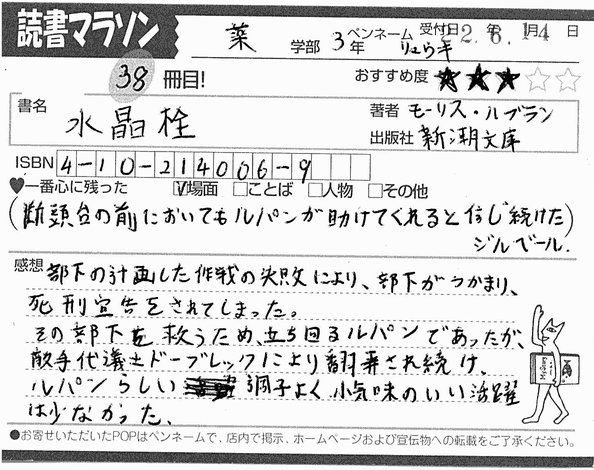 読書マラソン
薬 学部 3年 ペンネーム リュウキ 受付日 22年 6月14日
38冊目!
おすすめ度 ★★★☆☆
書名 水晶栓
著者 モーリス・ルブラン
出版社 新潮文庫
ISBN 4-10-214006-9
♥一番心に残った ☑場面 □ことば □人物 □その他
(断頭台の前においてもルパンが助けてくれると信じ続けた)
ジルベール.
感想 部下の計画した作戦の失敗により、部下がつかまり、
死刑宣告をされてしまった。
その部下を救うため、立ち回るルパンであったが、
敵手代議士ドーブレックにより翻弄され続け、
ルパンらしい 調子よく小気味のいい活躍
は少なかった、
●お寄せいただいたPOPはペンネームで、店内で掲示、ホームページおよび宣伝物への転載をご了承ください。